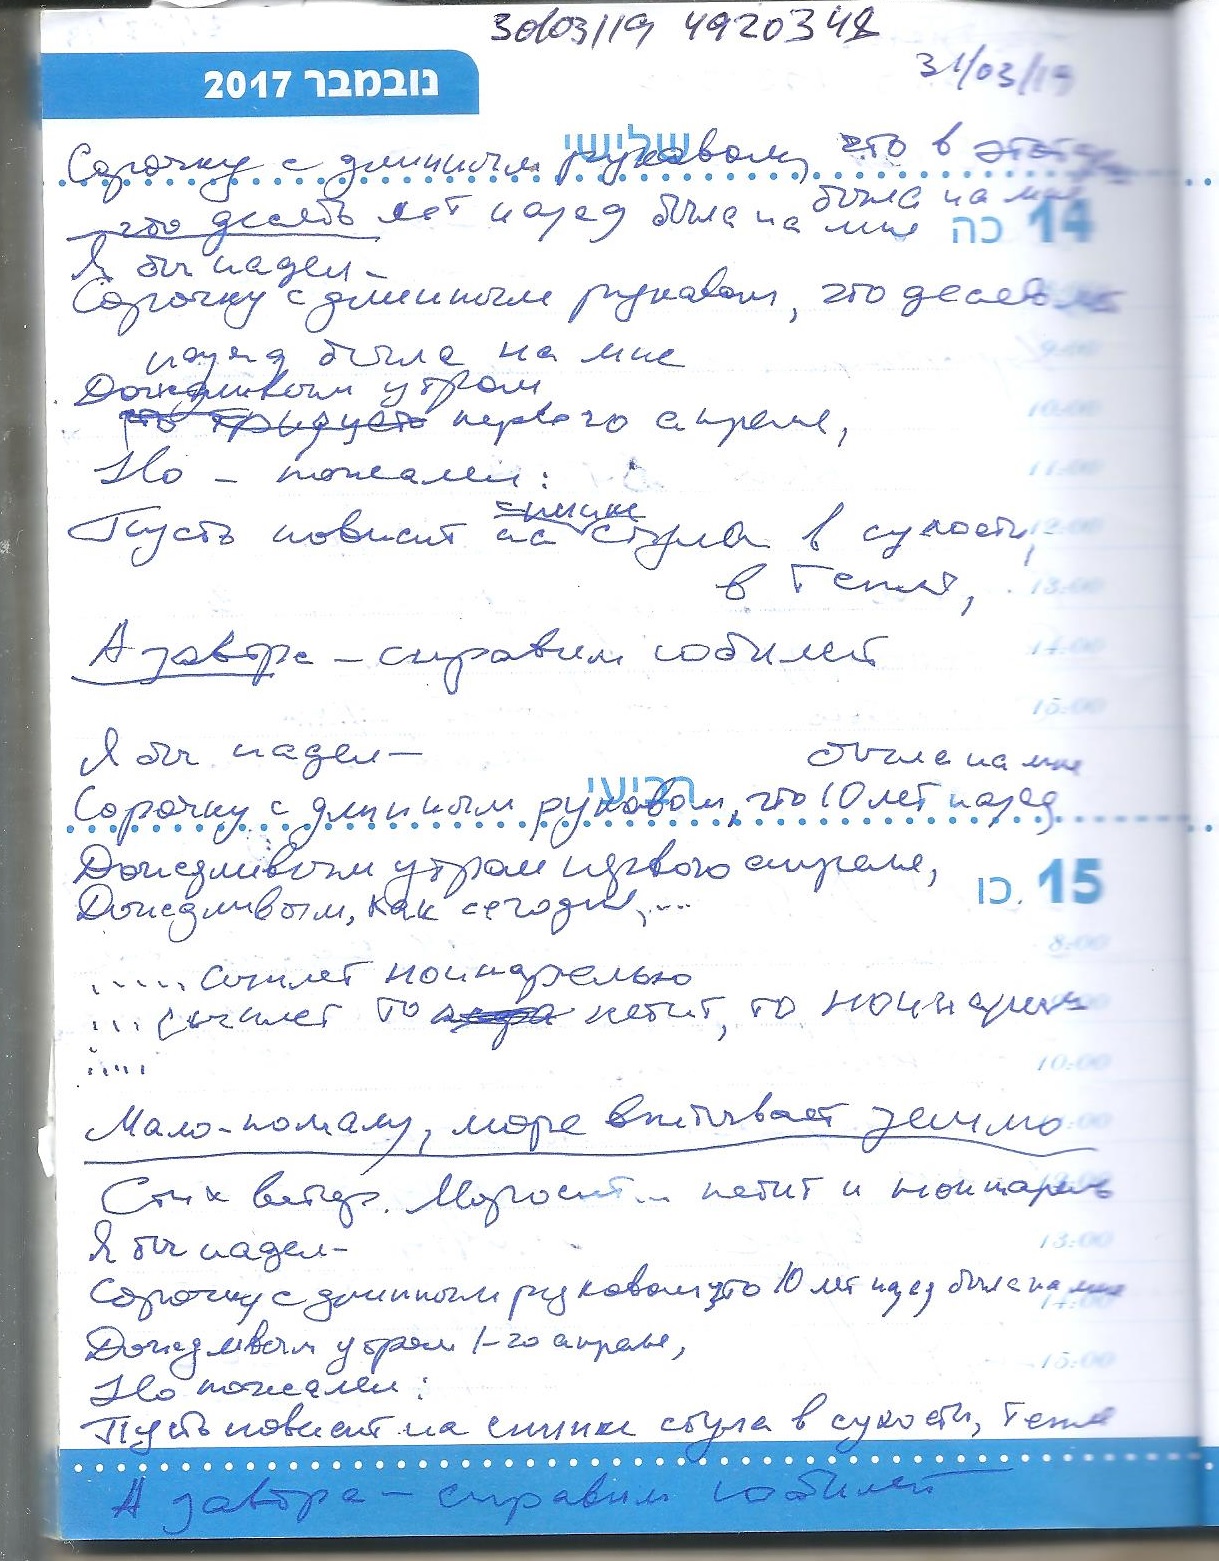 30/03/19 4920348
31/03/19
נובמבר 2017
שלישי
Сорочку с длинным рукавом, что в этот
была на мне
что десять лет назад была на мне
14 כה
Я бы надел –
Сорочку с длинным рукавом, что десять лет
назад была на мне
9:00
Дождливым утром
10:00
первого апреля,
11:00
Но – пожалел:
спинке
Пусть повисит на стула в сухости,
12:00
в тепле,
13:00
А завтра – справим юбилей
14:00
15:00
Я бы надел –
была на мне
רביעי
Сорочку с длинным рукавом, что 10 лет назад
Дождливым утром первого апреля,
15 כו.
Дождливым, как сегодня,...
8:00
..... сыплет нонпарелью
... сыплет то петит, то нонпарель
....
10:00
Мало-помалу, море впитывает землю
Стих ветер. Моросит... петит и нонпарель
Я бы надел –
13:00
Сорочку с длинным рукавом, что 10 лет назад была на мне
14:00
Дождливым утром 1-го апреля,
15:00
Но пожалел:
Пусть повисит на спинке стула в сухости, тепле
А завтра – справим юбилей